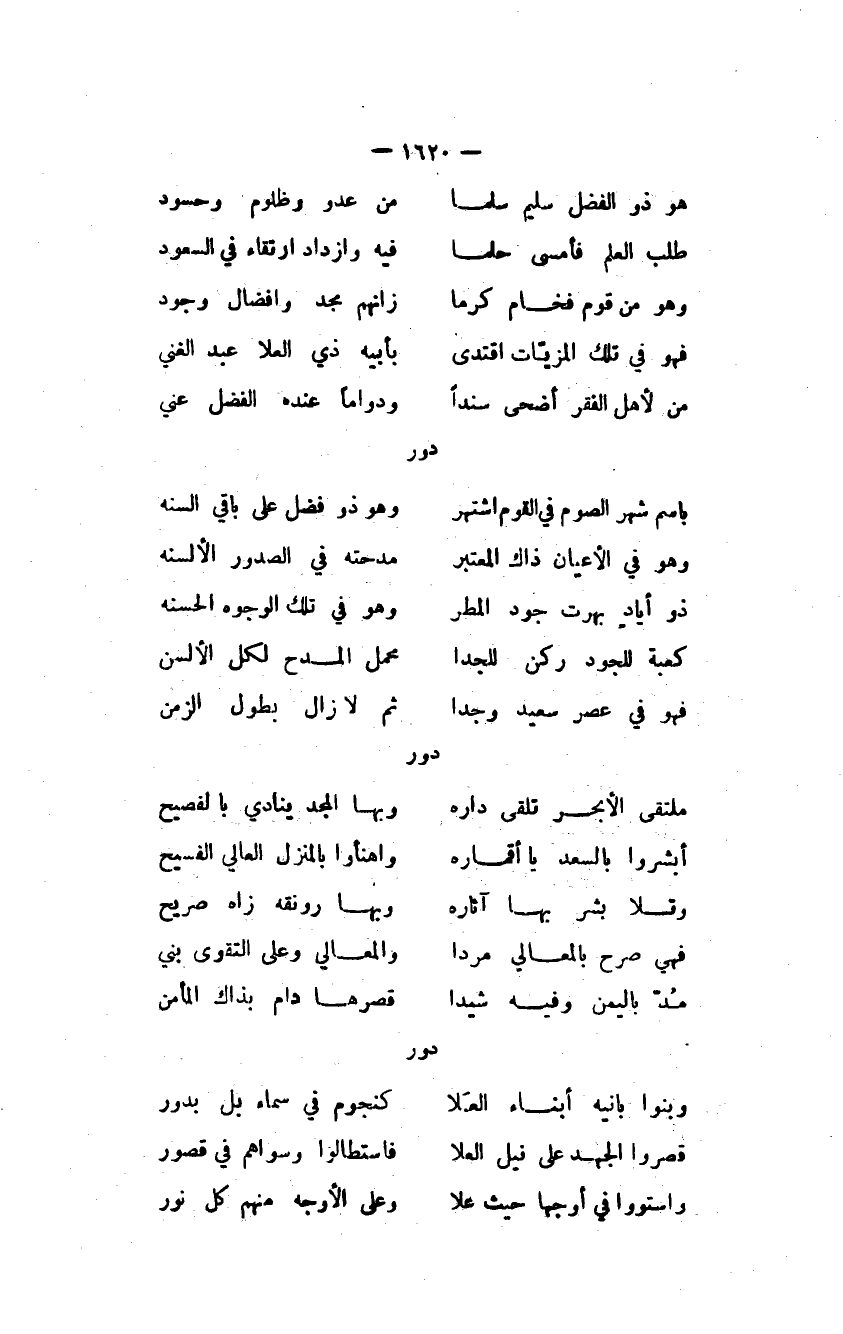 — ١٦٢٠ —
هو ذو الفضل سليم سلمـــا من عدو وظلوم وحسود
طلب العلم فأمسى حلمـــا فيه وازداد ارتقاء في السعود
وهو من قوم فخـــام كرما زانهم مجد وافضال وجود
فهو في تلك المزيّات اقتدى بأبيه ذي العلا عبد الغني
من لأهل الفقر أضحى سنداً ودواماً عنده الفضل عني
دور
باسم شهر الصوم في القوم اشتهر وهو ذو فضل على باقي السنه
وهو في الأعيان ذاك المعتبر مدحته في الصدور الألسنه
ذو أيادٍ بهرت جود المطر وهو في تلك الوجوه الحسنه
كعبة للجود ركن للجدا محمل المـــدح لكل الألسن
فهو في عصر سعيد وجدا ثم لا زال بطول الزمن
دور
ملتقى الأبحـــر تلقى داره وبهـــا المجد ينادي بالفصيح
أبشروا بالسعد يا أقمـــاره واهنأوا بالمنزل العالي الفسيح
وتـــلا بشر بهـــا آثاره وبهـــا رونقه زاه صريح
فهي صرح بالمعـــالي مردا والمعـــالي وعلى التقوى بني
مُدّ باليمن وفيـــه شيدا قصرهـــا دام بذاك المأمن
دور
وبنوا بانيه أبنـــاء العُلا كنجوم في سماء بل بدور
قصروا الجهـــد على نيل العلا فاستطالوا وسواهم في قصور
واستووا في أوجها حيث علا وعلى الأوجه منهم كل نور